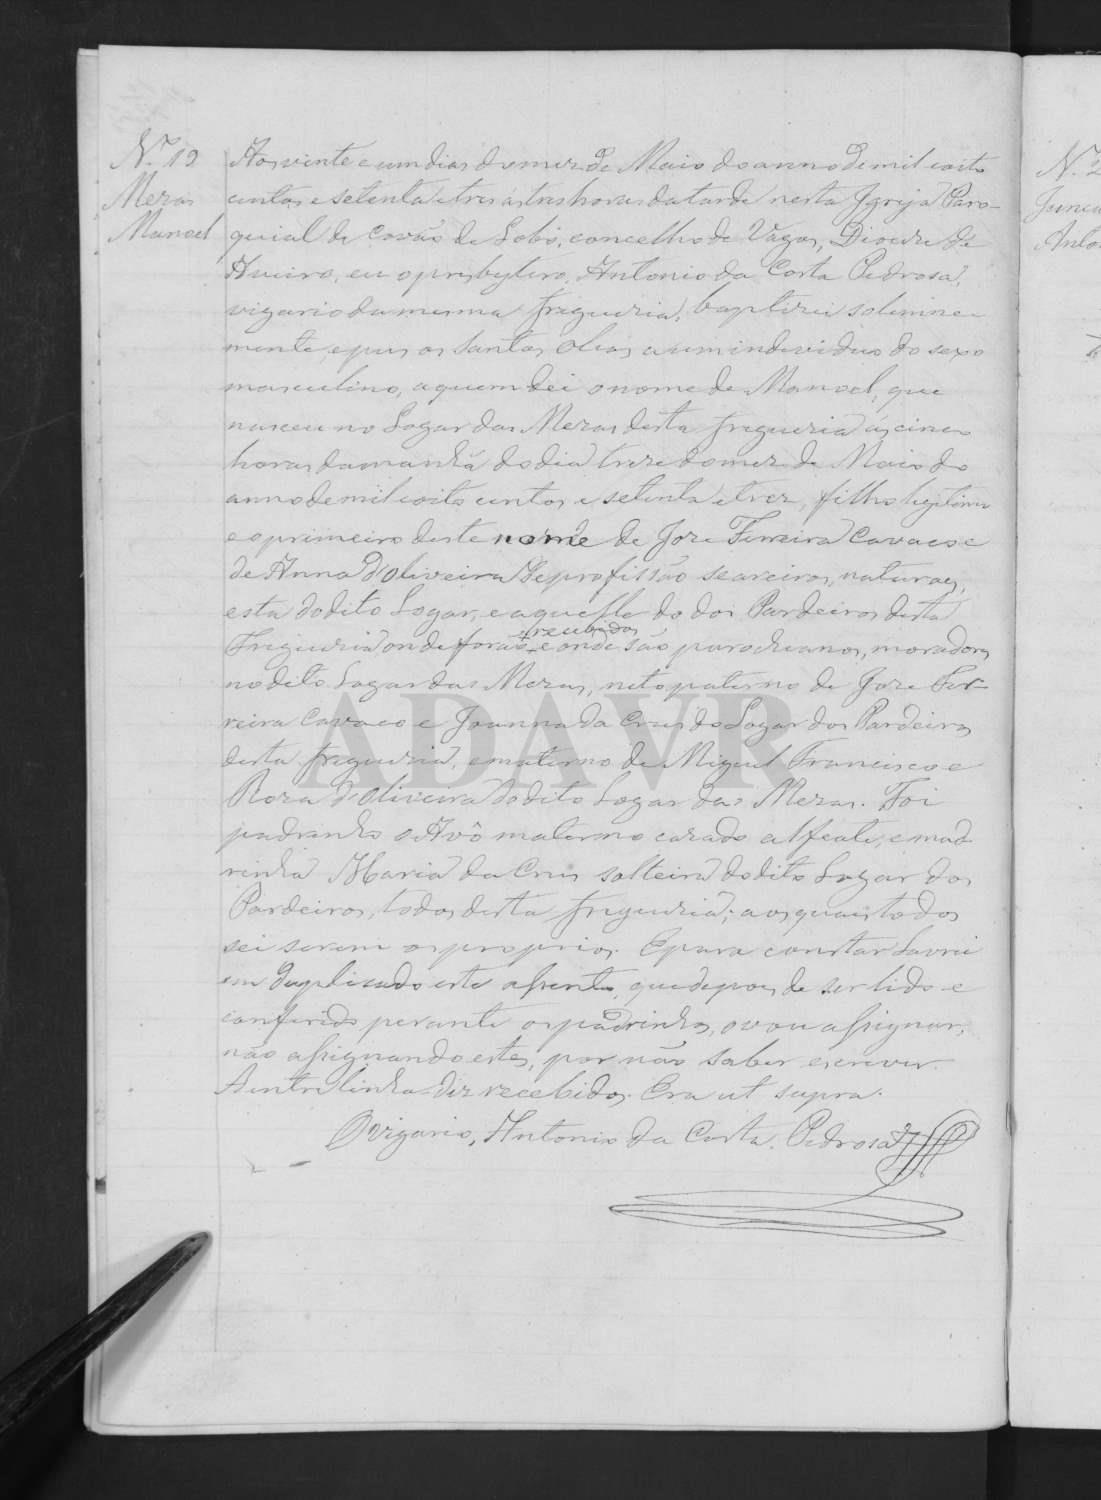 N.º 19
Mezas
Manoel
Aos vinte e um dias do mez de Maio do anno de mil oito
centos e setenta e tres ás tres horas da tarde nesta Igreja Paro-
quial de Covão de Lobo, concelho de Vagos, Diocese de
Aveiro, eu o presbytero Antonio da Costa Pedrosa,
vigario da mesma freguezia, baptizei solemne-
mente, e puz os Santos Oleos a um individuo do sexo
masculino, a quem dei o nome de Manoel, que
nasceu no Logar das Mezas desta freguezia ás cinco
horas da manhã do dia treze do mez de Maio do
anno de mil oito centos e setenta e trez, filho legitimo
e o primeiro deste nome de Joze Ferreira Cavaco e
de Anna d'Oliveira de profissão seareiros, naturaes,
esta do dito Logar, e aquelle do dos Pardeiros desta
Freguezia onde forão recebidos e onde são parochianos, moradores
no dito Logar das Mezas, neto paterno de Joze Fer-
reira Cavaco e Joanna da Cruz do Logar dos Pardeiros
desta freguezia, e materno de Miguel Francisco e
Roza d'Oliveira do dito Logar das Mezas. Foi
padrinho o Avô materno cazado alfeate, e mad
rinha Maria da Cruz solteira do dito Lugar dos
Pardeiros, todos desta freguezia; aos quaes todos
sei serem os proprios. E para constar lavrei
em duplicado este assento, que depois de ser lido e
conferido perante os padrinhos, o vou assignar,
não assignando estes, por não saber escrever.
A entrelinha diz recebidos. Era ut supra.
O vigario, Antonio da Costa Pedrosa
ADAVR
N.º 2
Junca
Anto